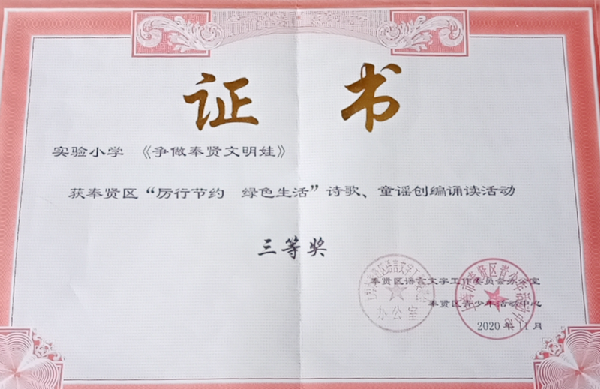 证书
实验小学 《争做奉贤文明娃》
获奉贤区“厉行节约 绿色生活”诗歌、童谣创编诵读活动
三等奖
奉贤区语言文字工作委员会办公室
奉贤区青少年活动中心
2020年11月
办公室